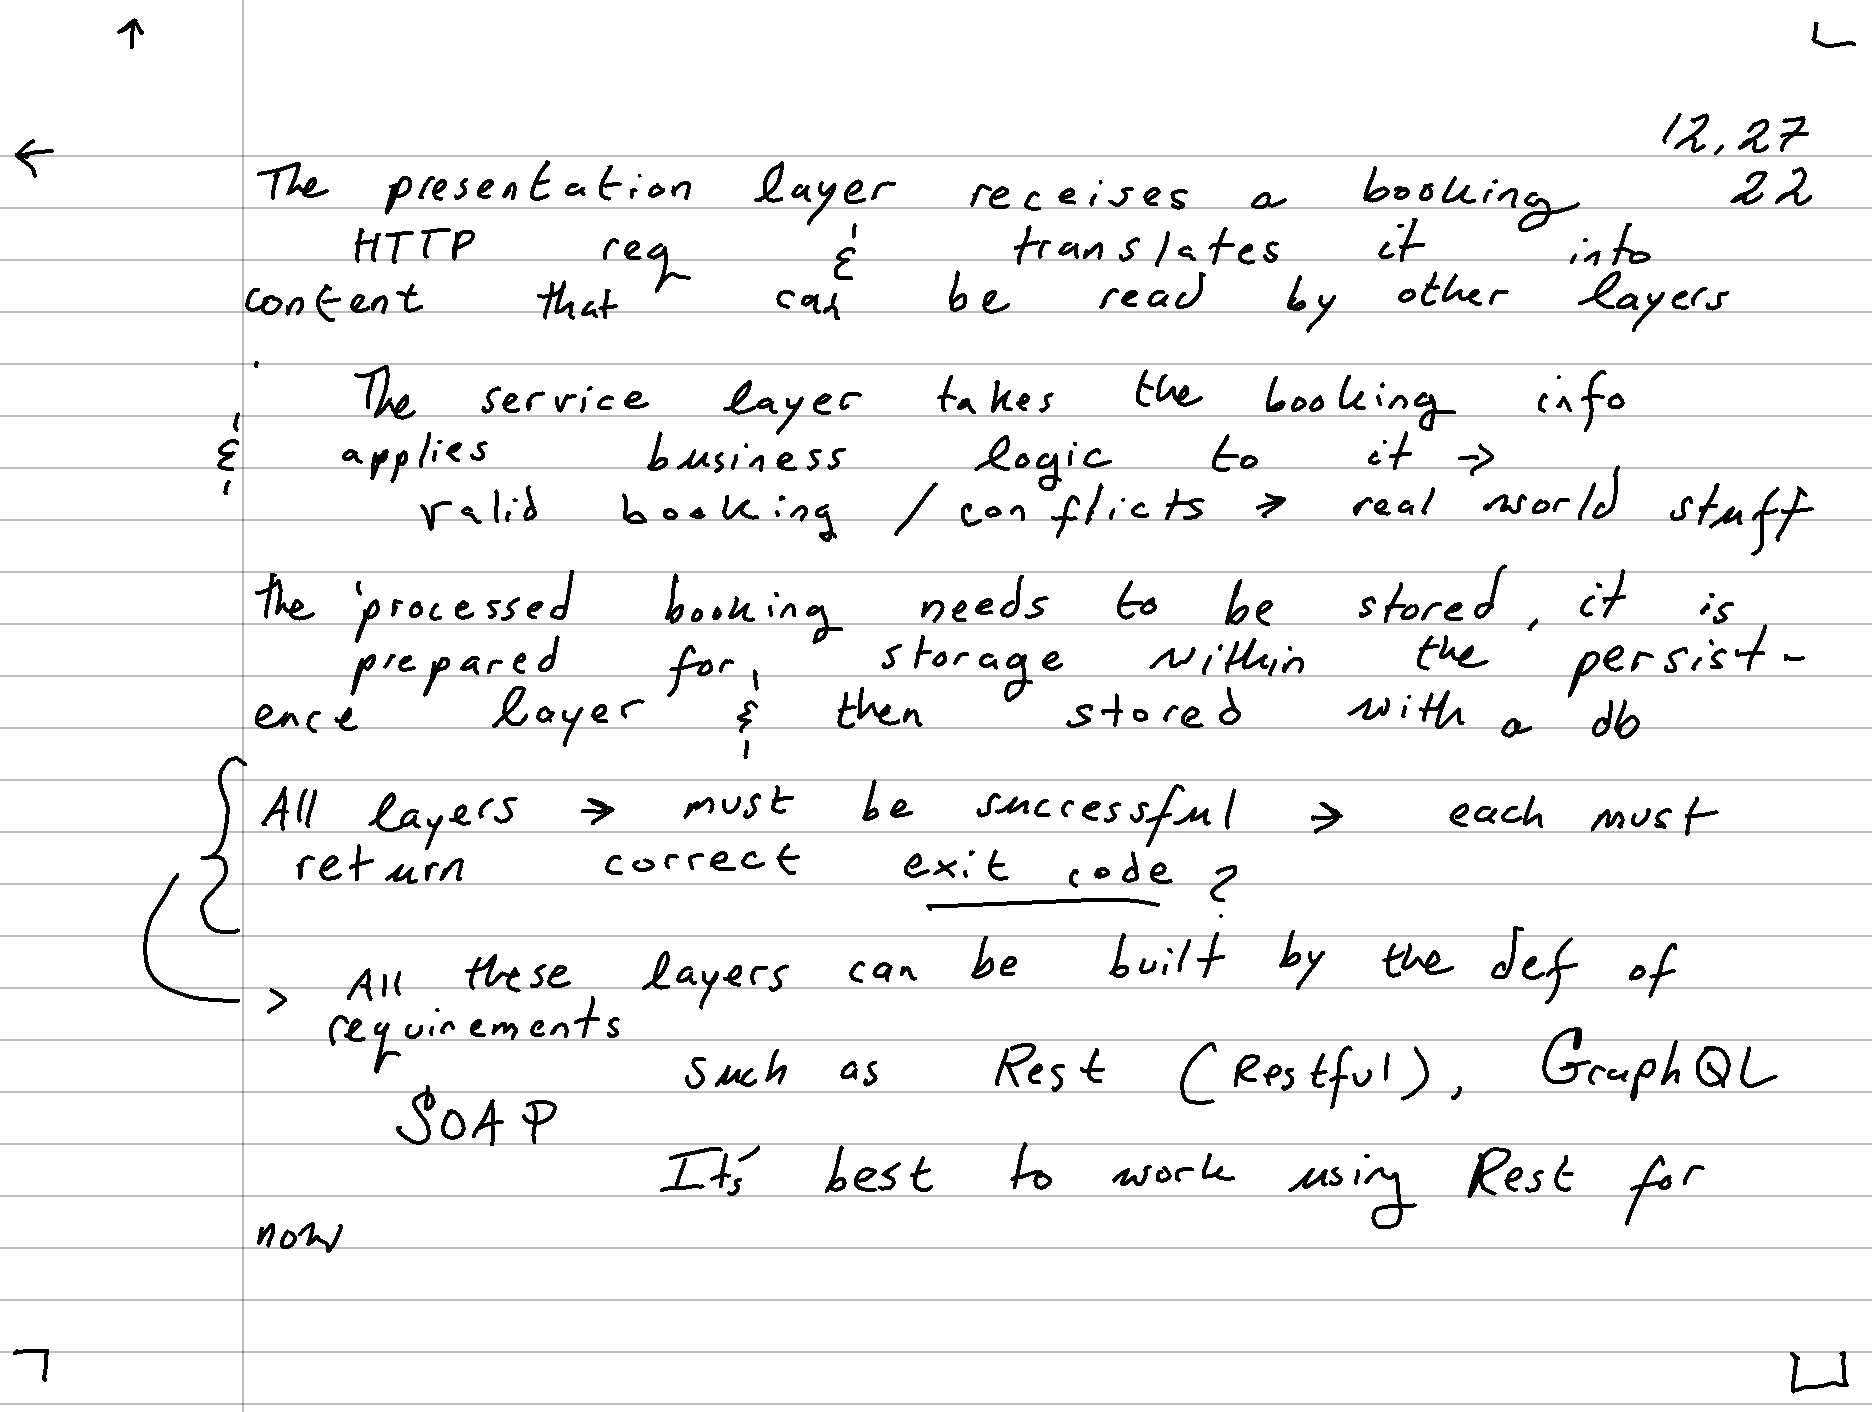 12,27
The presentation layer receises a booking 22
HTTP req & translates it into
content that can be read by other layers
The service layer takes the booking info
& applies business logic to it →
valid booking / conflicts → real world stuff
the processed booking needs to be stored, it is
prepared for storage within the persist-
ence layer & then stored with a db
All layers → must be successful → each must
return correct exit code ?
> All these layers can be built by the def of
requirements
such as Rest (Restful), GraphQL
SOAP
It's best to work using Rest for
now